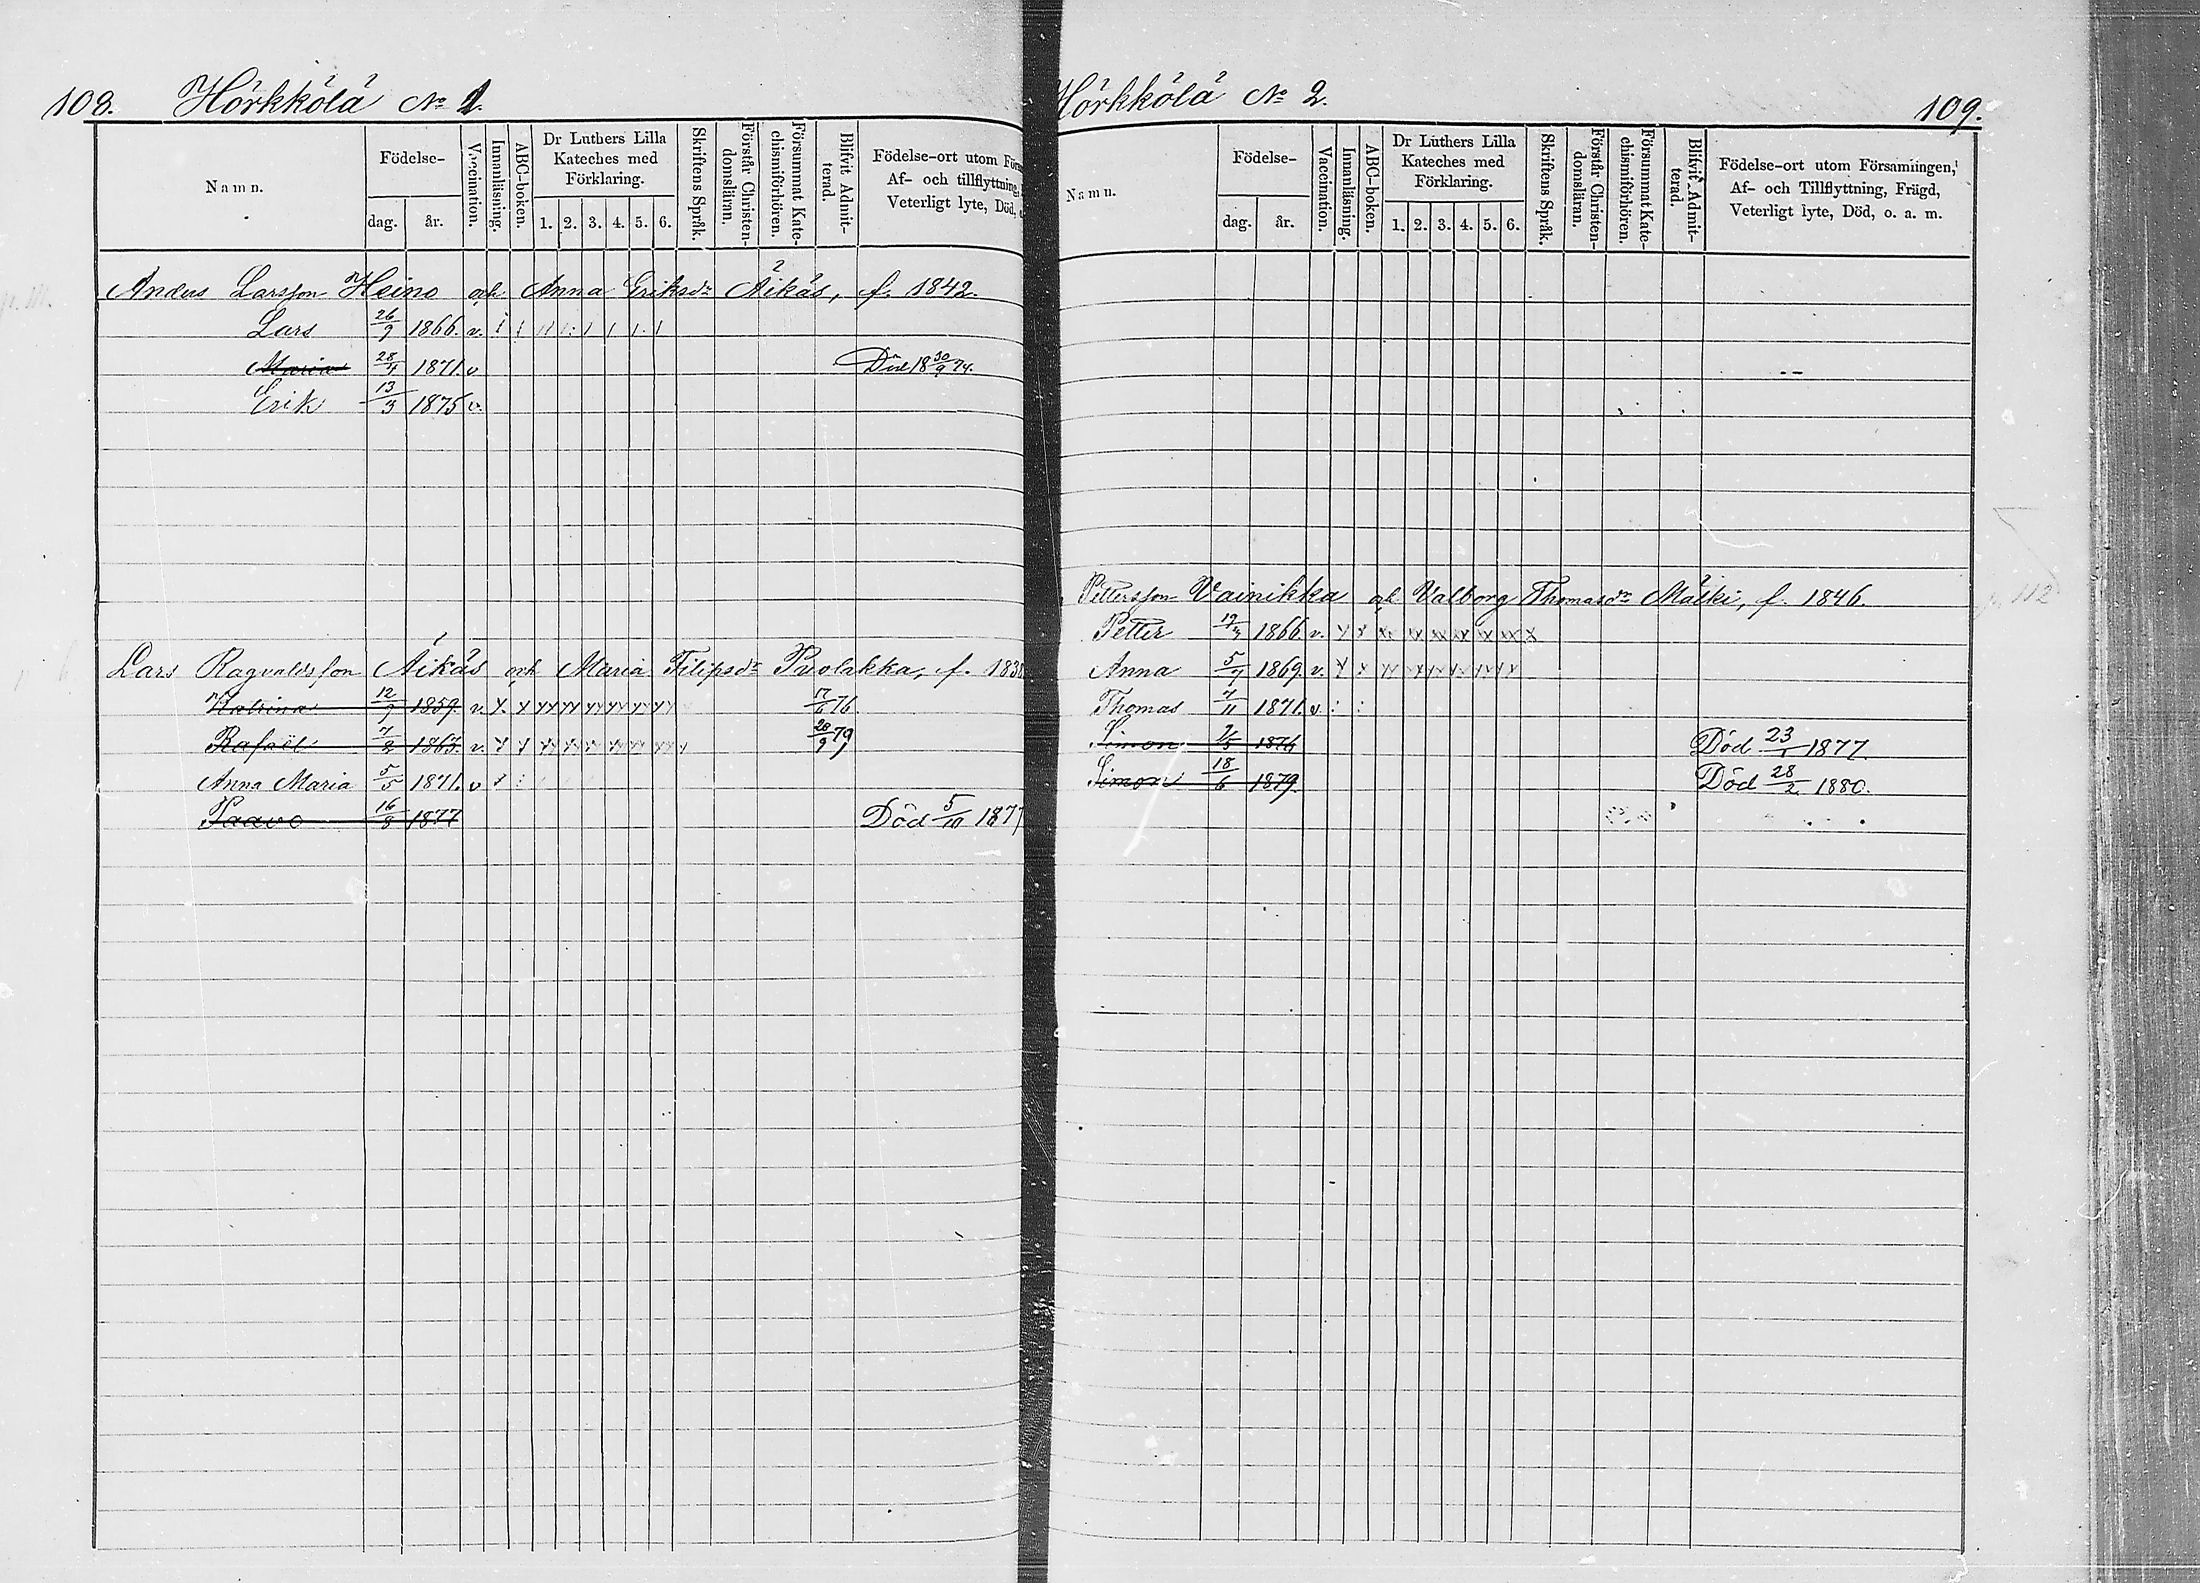 108. Hörkkölä № 1.
Namn. Födelse- dag. år. Vaccination. Innanläsning. ABC-boken. Dr Luthers Lilla Kateches med Förklaring. 1. 2. 3. 4. 5. 6. Skriftens Språk. Förstår Christen-domsläran. Försummat Kate-chismiförhören. Blifvit Admit-terad. Födelse-ort utom För Af- och tillflyttning, Veterligt lyte, Död,
Anders Larsson Heino och Anna Eriksdr Äikäs, f. 1842.
Lars 26/9 1866. v.
Maria 28/4 1871. v Död 18 30/9 74.
Erik 13/3 1875 v.
Lars Ragvaldsson Äikäs och Maria Filipsdr Puolakka, f. 1838
Katrina 12/9 1859. v. 17/6 76
Rafaël 7/2 1863. v. 28/9 79
Anna Maria 5/5 1871. v
Paavo 16/8 1877 Död 5/10 1877
Hörkkölä № 2. 109.
Namn. Födelse- dag. år. Vaccination. Innanläsning. ABC-boken. Dr Luthers Lilla Kateches med Förklaring. 1. 2. 3. 4. 5. 6. Skriftens Språk. Förstår Christen-domsläran. Försummat Kate-chismiförhören. Blifvit Admit-terad. Födelse-ort utom Församlingen, Af- och Tillflyttning, Frägd, Veterligt lyte, Död, o. a. m.
Pettersson Vainikka och Valborg Thomasdr Mälki, f. 1846.
Petter 1866 v.
Anna 5/7 1869. v.
Thomas 7/11 1871. v
Simon 2/5 1876 Död 23/1 1877.
Simon 18/6 1879. Död 28/2 1880.
p. 112